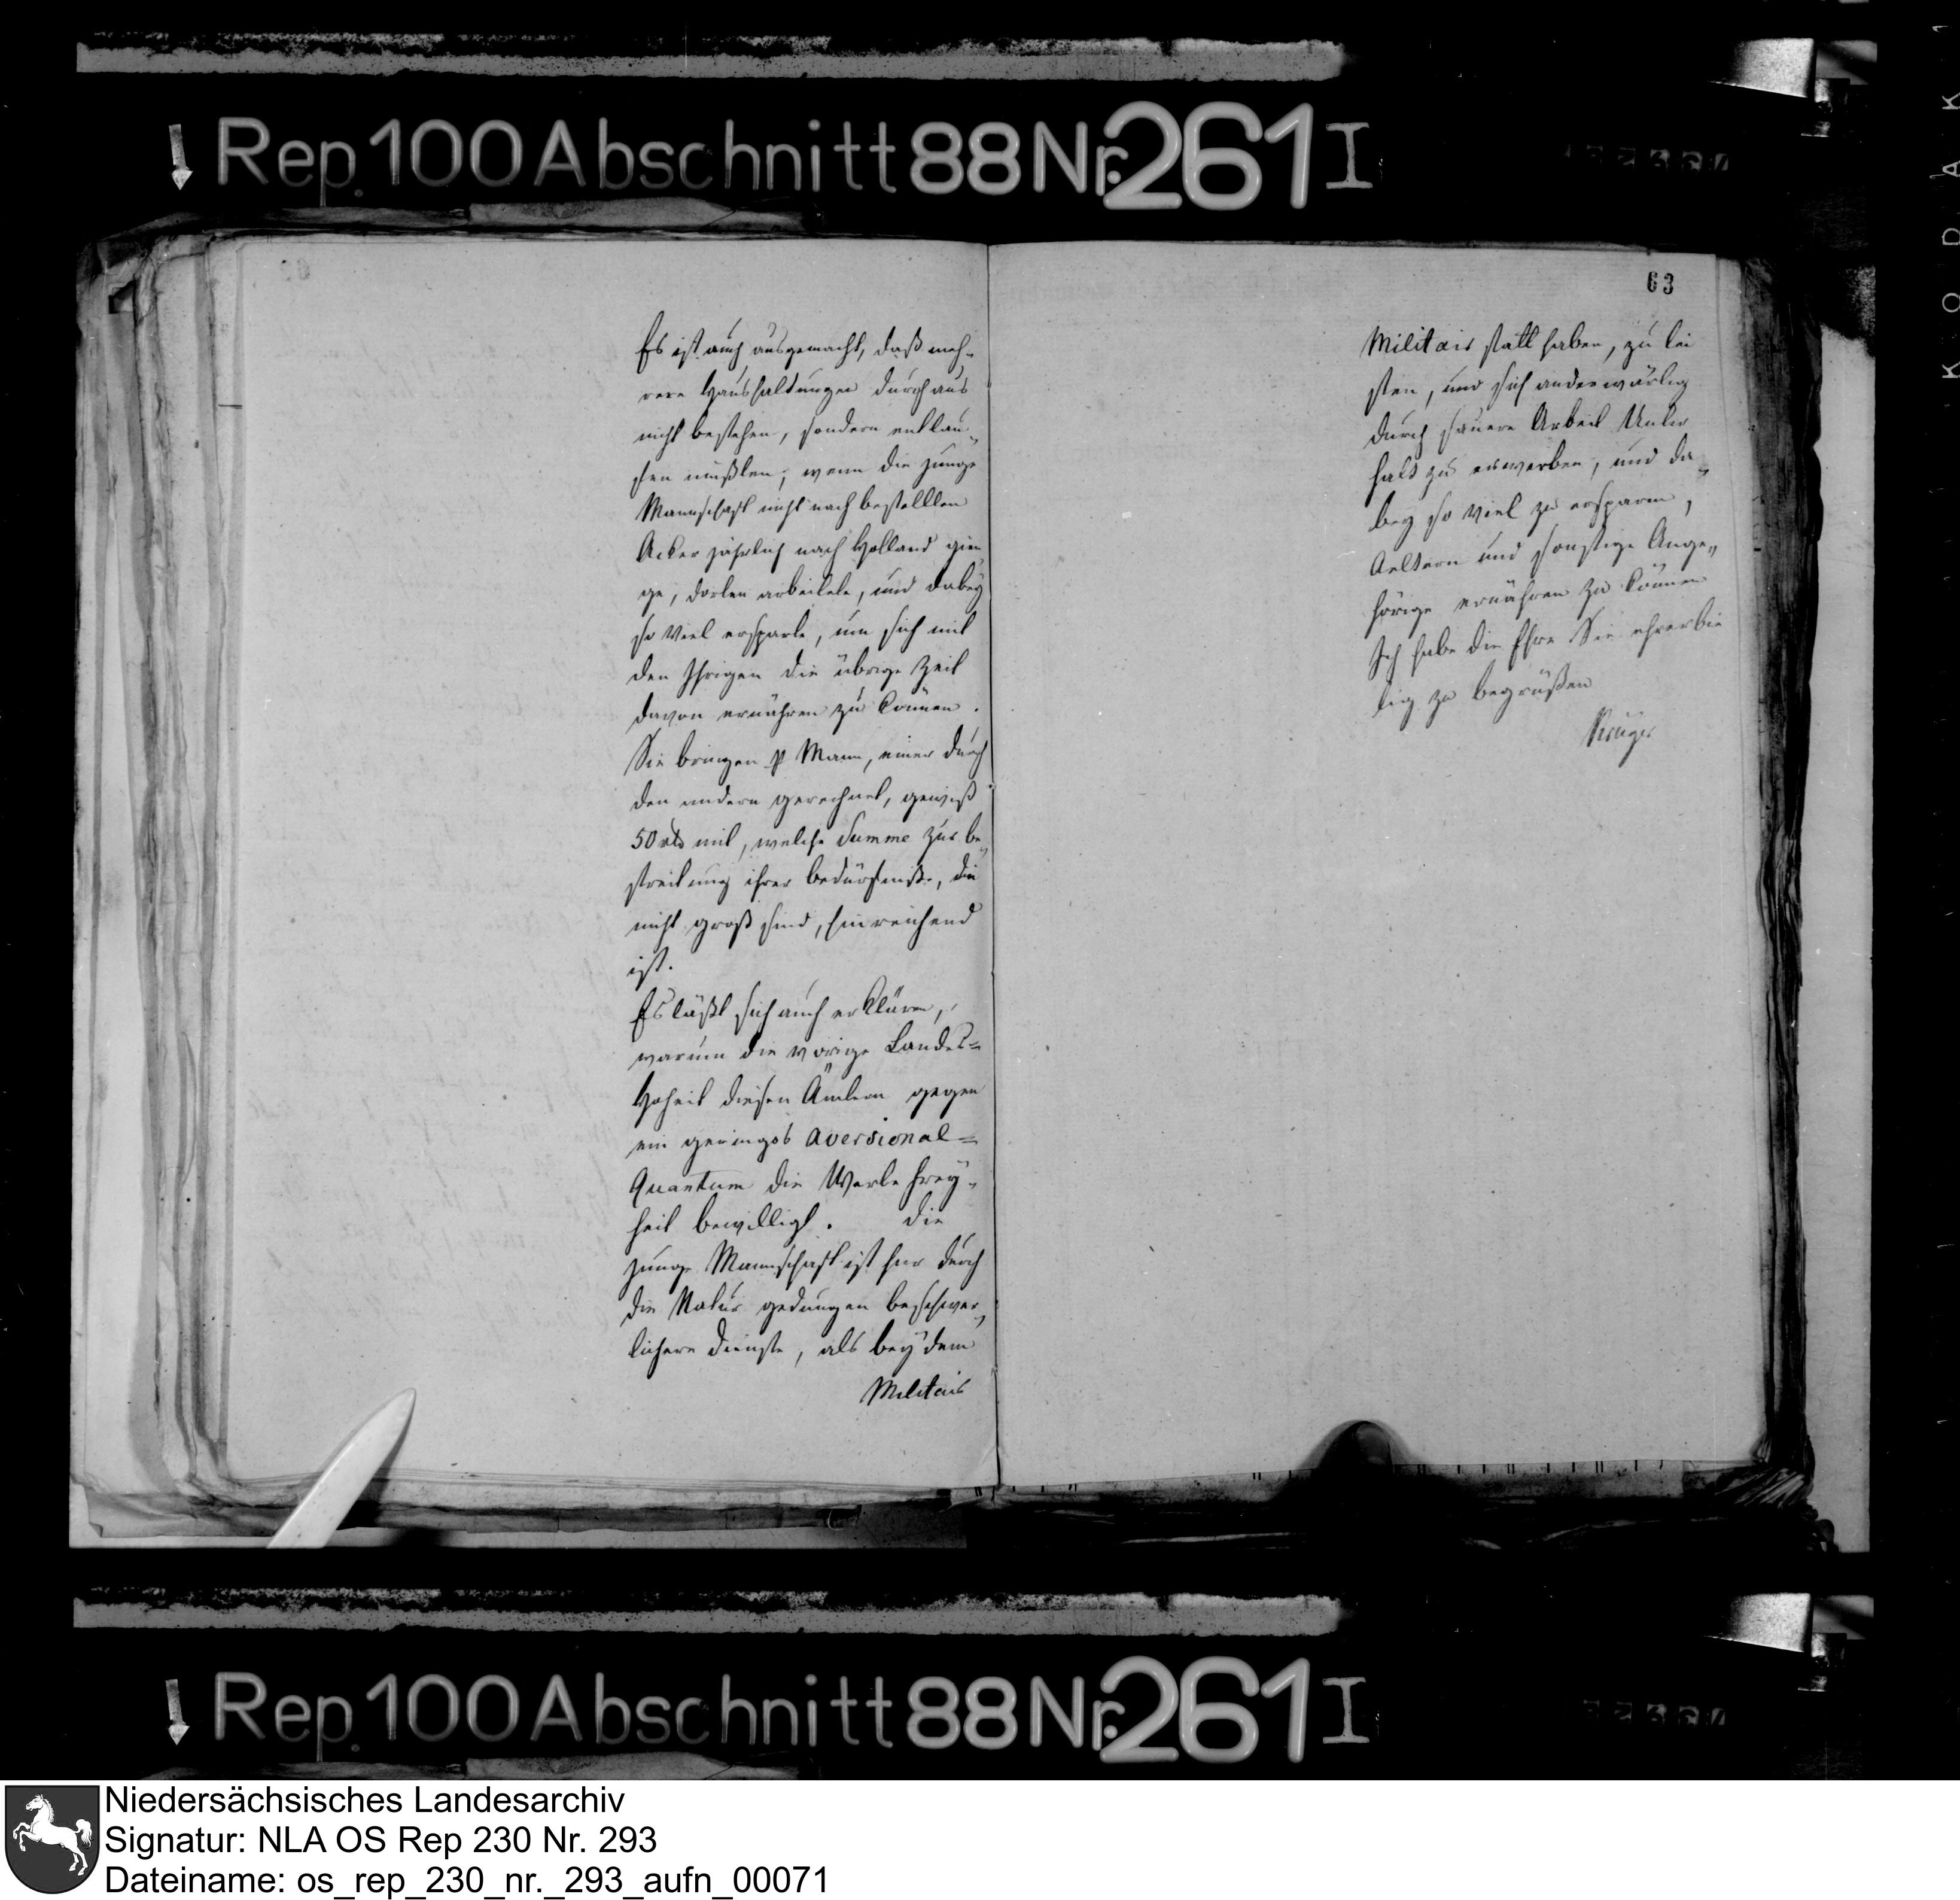 Rep. 100 Abschnitt 88 Nr. 261 I
Es ist auch ausgemacht, daß meh-
rere Haushaltungen durchaus
nicht bestehen, sondern entlau-
fen müßten, wenn die junge
Mannschaft nicht nach bestellten
Acker jährlich nach Holland gien
ge, dorten arbeitete, und dabey
so viel ersparte, um sich mit
den Ihrigen die übrige Zeit
davon ernähren zu können.
Sie bringen p Mann, einer durch
den andern gerechnet, gewiß
50 rth mit, welche Summe zur be„
streitung ihrer bedürfniße, die
nicht groß sind, hinreichend
ist.
Es läßt sich auch erklären,
warum die vorige Landes=
Hoheit diesen Ämtern gegen
ein geringes aversional=
Quantum die Werbe frey-
heit bewilligt. die
junge Mannschaft ist hier durch
die Natur gedungen beschwer„
lichere dienste, als bey dem
Militair
63
Militair statt haben, zu lei
sten, und sich anderwärtig
durch sauere Arbeit Unter
halt zu erwerben, und da„
bey so viel zu ersparen,
Aeltern und sonstige Ange„
hörige ernähren zu können
Ich habe die Ehre Sie ehrerbie
tig zu begrüßen
Krüger
Rep. 100 Abschnitt 88 Nr. 261 I
KODAK
Niedersächsisches Landesarchiv
Signatur: NLA OS Rep 230 Nr. 293
Dateiname: os_rep_230_nr._293_aufn_00071